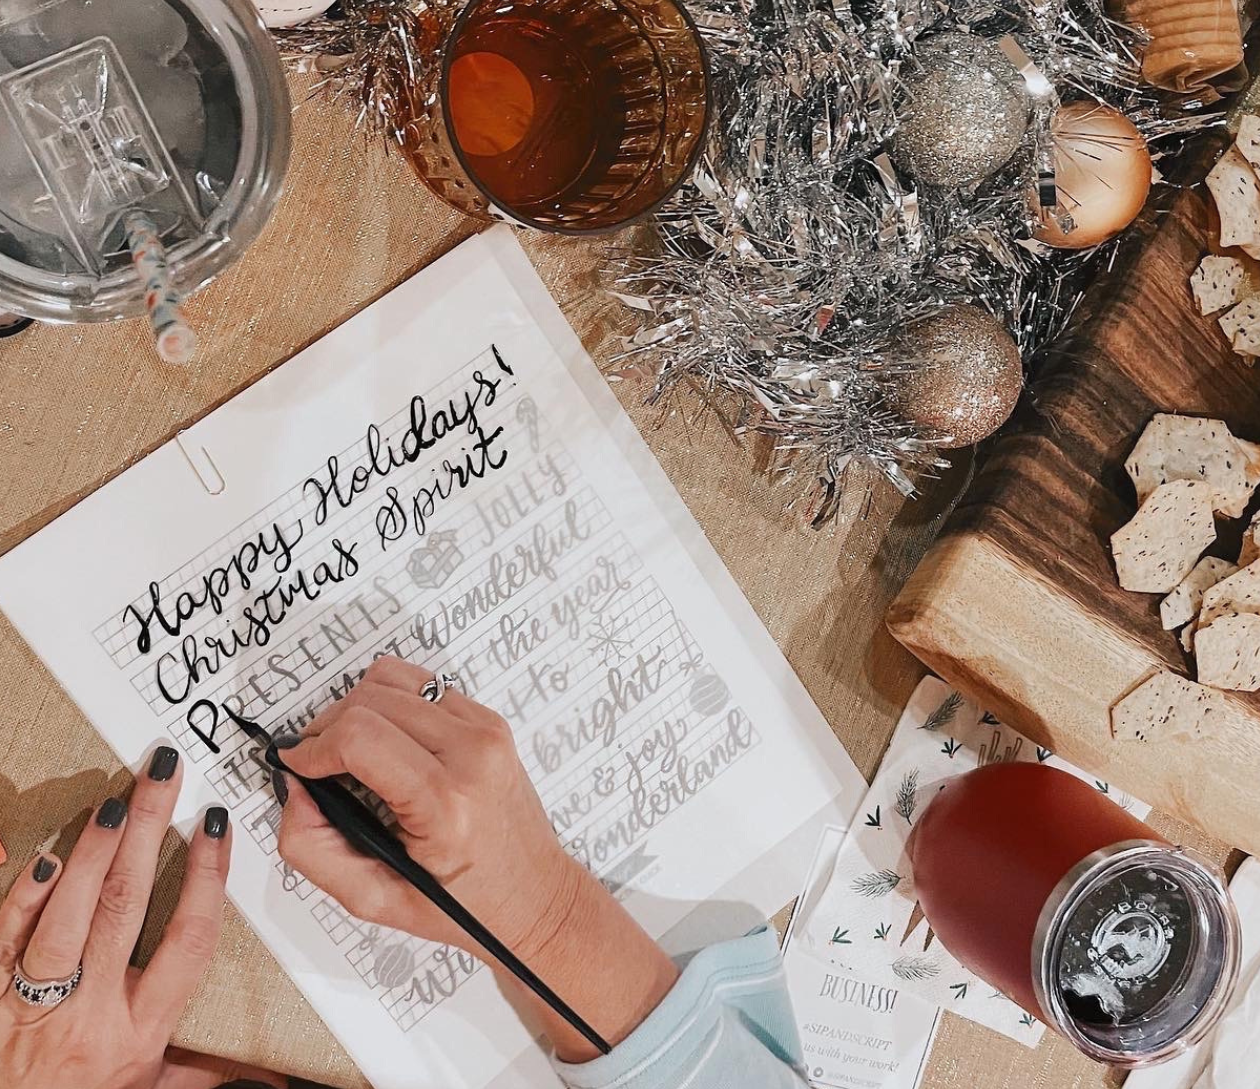 Happy Holidays!
Christmas Spirit
PRESENTS JOLLY
IT'S THE MOST Wonderful
of the year
to
bright
& joy
Wonderland
BUSINESS!
#SIPANDSCRIPT
us with your work!
@SIPANDSCRIPT